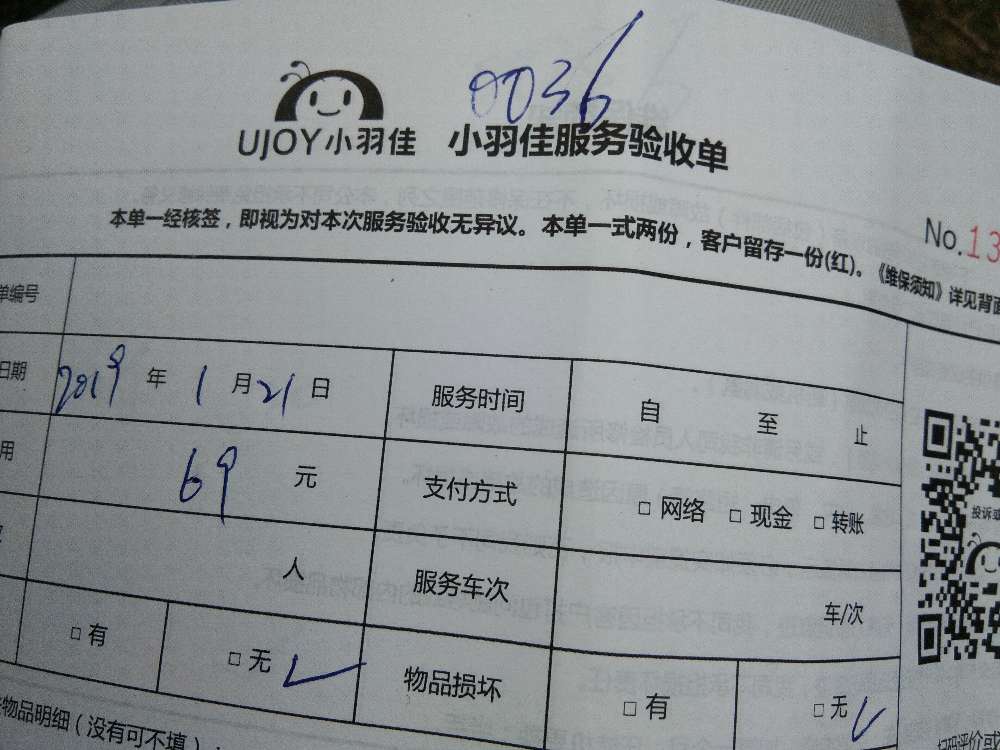 0036
UJOY小羽佳 小羽佳服务验收单
本单一经核签，即视为对本次服务验收无异议。本单一式两份，客户留存一份(红)。《维保须知》详见背面
No.13
单编号
日期 2019 年 1 月 21 日 服务时间 自 至 止
用 69 元 支付方式 □ 网络 □ 现金 □ 转账
人 服务车次 车/次
□ 有 □ 无 ✓ 物品损坏 □ 有 □ 无 ✓
物品明细（没有可不填）：
投诉或
扫码评价或